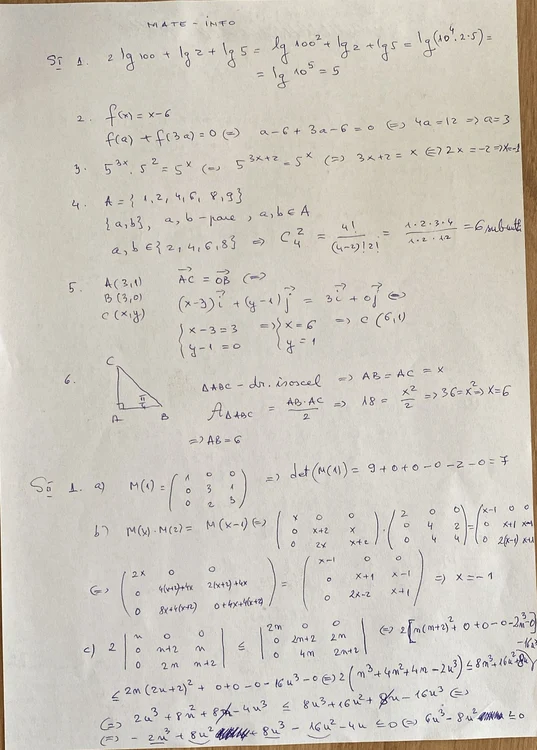 MATE - INFO
SI 1. 2 lg 100 + lg 2 + lg 5 = lg 100² + lg 2 + lg 5 = lg(10⁴·2·5) =
= lg 10⁵ = 5
2. f(x) = x-6
f(a) + f(3a) = 0 (=) a-6 + 3a-6 = 0 (=) 4a = 12 => a = 3
3. 5^{3x} · 5² = 5^x (=) 5^{3x+2} = 5^x (=) 3x+2 = x (=) 2x = -2 => x = -1
4. A = {1, 2, 4, 6, 8, 9}
{a,b}, a, b - pare, a, b ∈ A
a, b ∈ {2, 4, 6, 8} => C₄² = 4!/((4-2)! 2!) = 1·2·3·4/(1·2·1·2) = 6
5. A(3,1) AC = OB (=)
B(3,0) (x-3)i + (y-1)j = 3i + 0j (=)
C(x,y) { x-3 = 3 => { x = 6 => C(6,1)
y-1 = 0 y = 1
6. C
A B π/4
ΔABC - dr. isoscel => AB = AC = x
A ΔABC = AB·AC/2 => 18 = x²/2 => 36 = x² => x = 6
=> AB = 6
SII 1. a) M(1) = (1 0 0; 0 3 1; 0 2 3) => det(M(1)) = 9+0+0-0-2-0 = 7
b) M(x)·M(2) = M(x-1) (=) (x 0 0; 0 x+2 x; 0 2x x+2) · (2 0 0; 0 4 2; 0 4 4) = (x-1 0 0; 0 x+1 x-1; 0 2(x-1) x+1)
(=) (2x 0 0; 0 4(x+2)+4x 2(x+2)+4x; 0 8x+4(x+2) 0+4x+4(x+2)) = (x-1 0 0; 0 x+1 x-1; 0 2x-2 x+1) => x = -1
c) 2 |n 0 0; 0 n+2 n; 0 2n n+2| ≤ |2n 0 0; 0 2n+2 2n; 0 4n 2n+2| (=) 2[n(n+2)² + 0+0-0-2n³-0]
≤ 2n(2n+2)² + 0+0-0-16n³-0 (=) 2(n³+4n²+4n-2n³) ≤ 8n³+16n²+8n -16n³
(=) 2n³ + 8n² + 8n - 4n³ ≤ 8n³ + 16n² + 8n - 16n³ (=)
(=) -2n³ + 8n² + 8n³ - 16n² ≤ 0 (=) 6n³ - 8n² ≤ 0